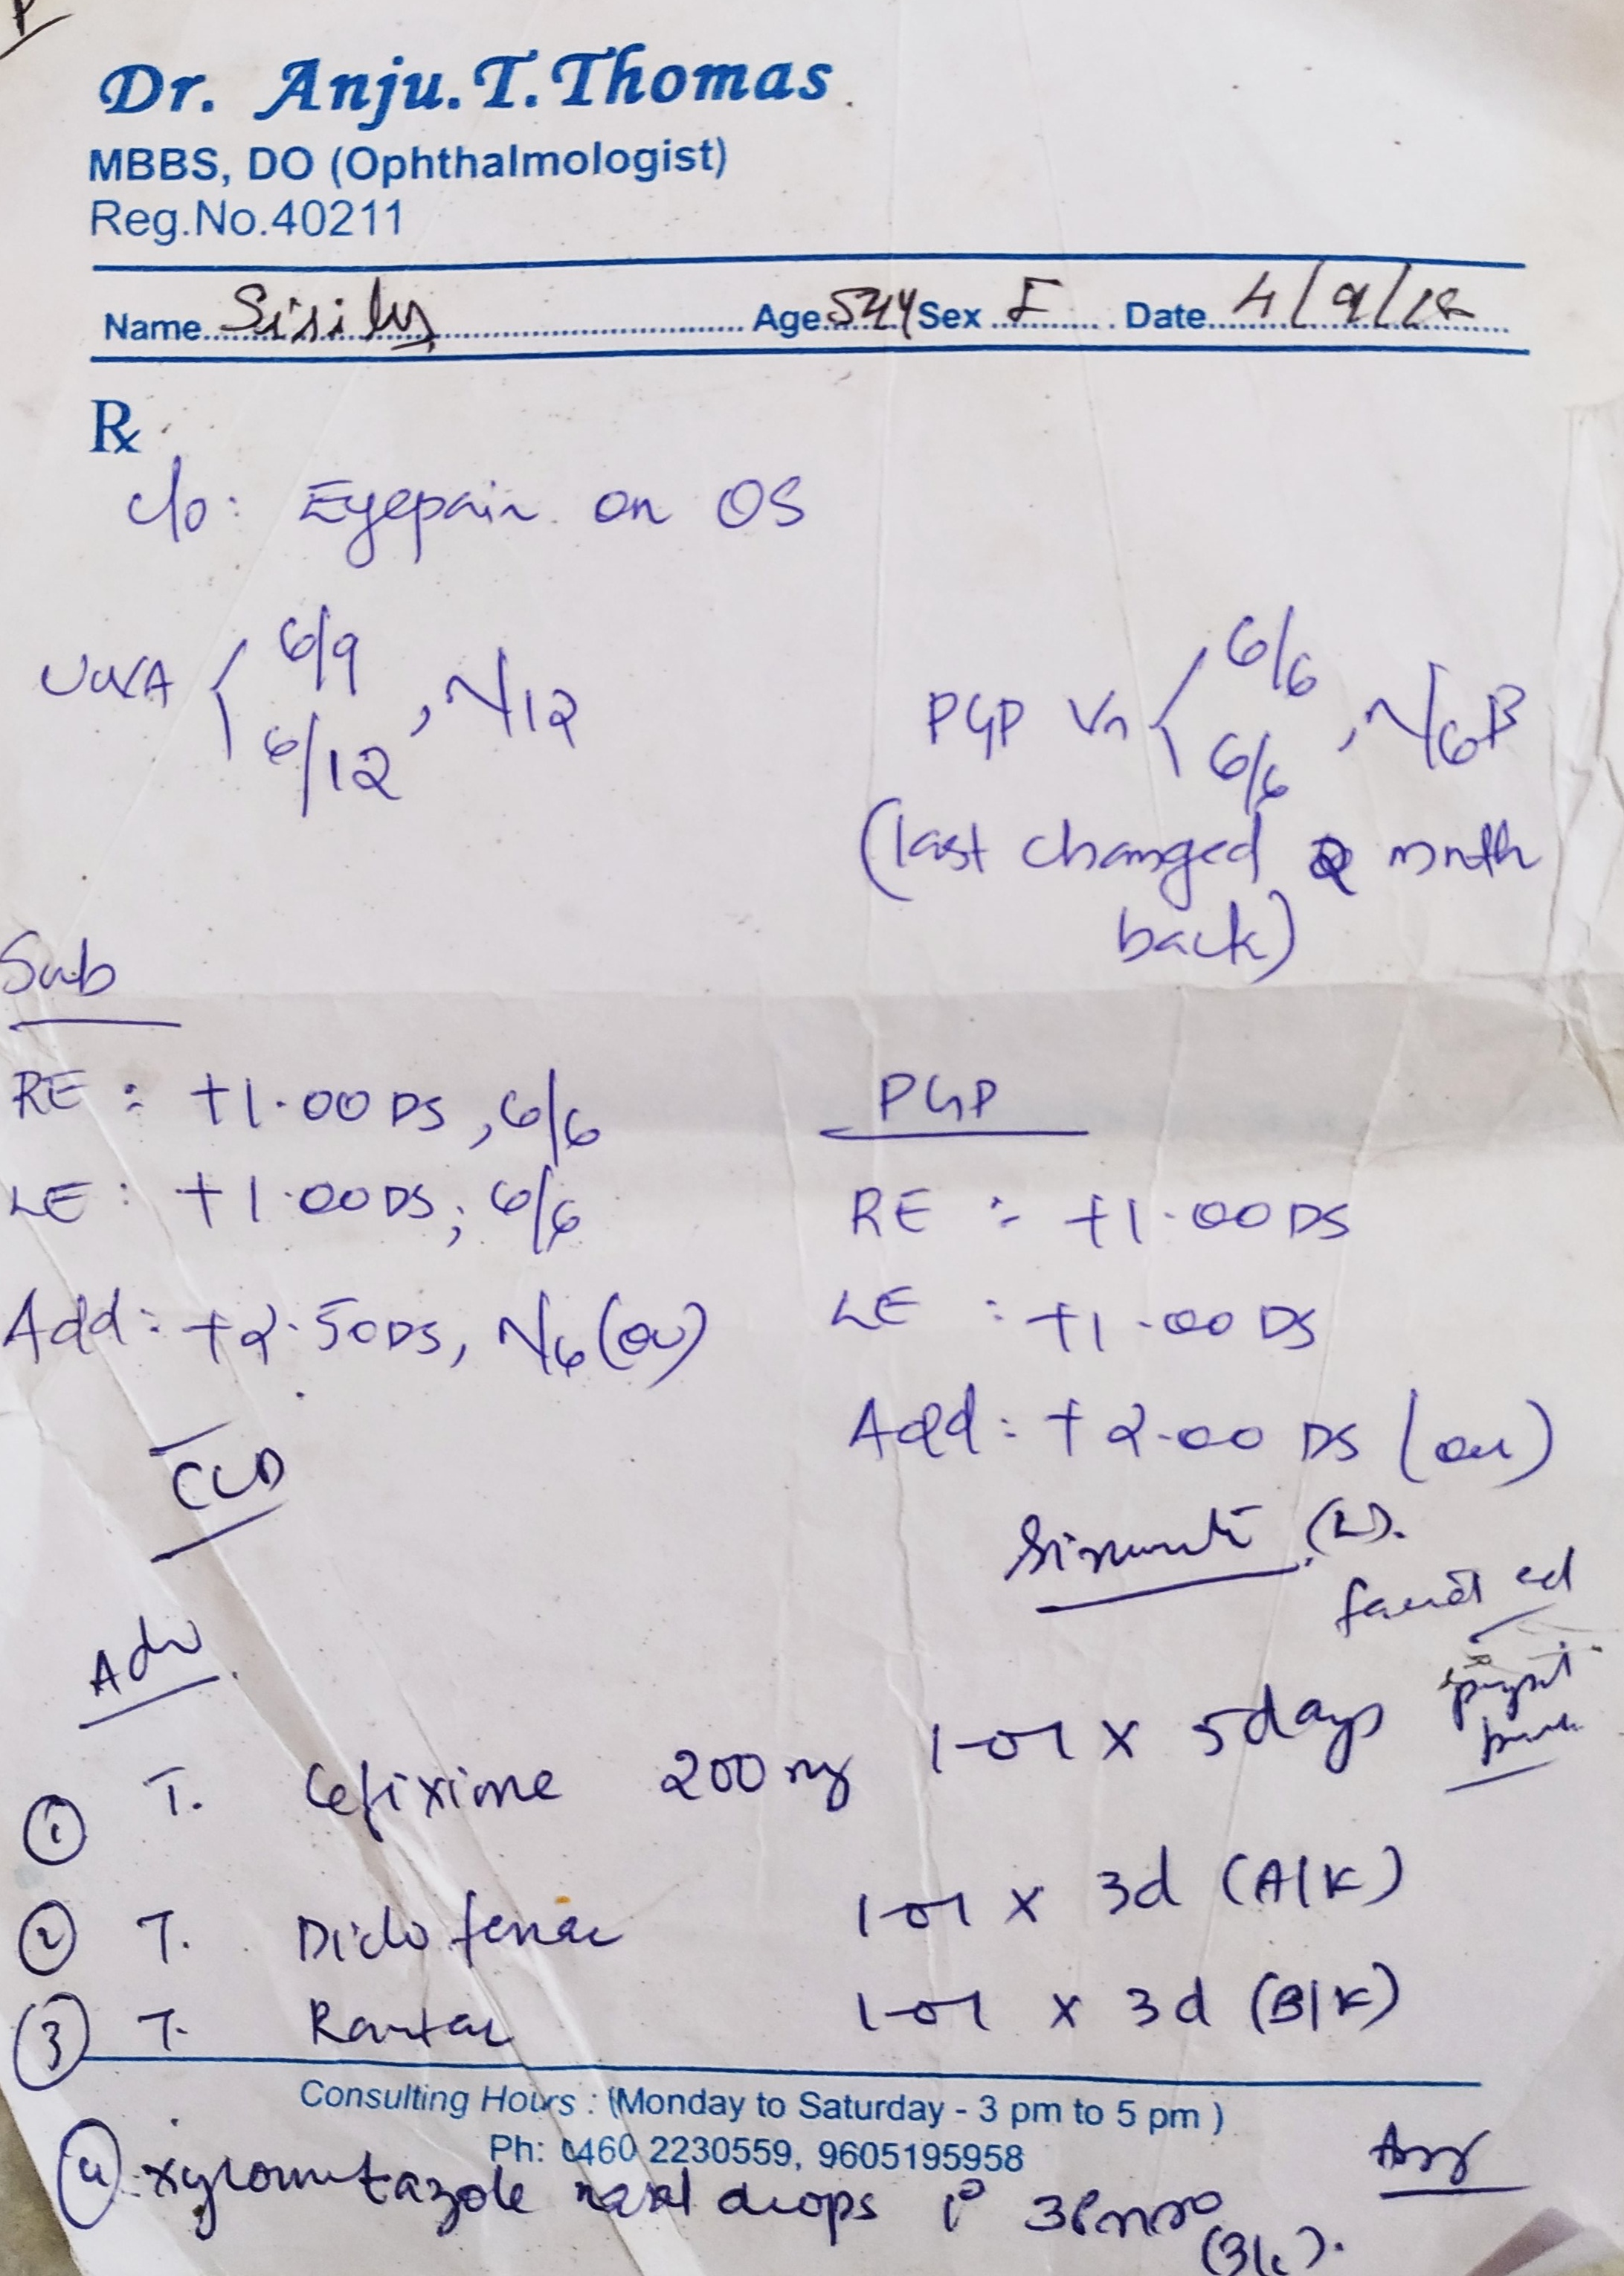 Dr. Anju.T.Thomas
MBBS, DO (Ophthalmologist)
Reg.No.40211
Name Sisily Age 54y Sex F Date 4/9/18
Rx
c/o: Eyepain on OS
UCVA 6/9 6/12, N/12
PGP Vn 6/6 6/6, N/6 B
(last changed 2 month
back)
Sub
RE: +1.00 DS, 6/6
LE: +1.00 DS; 6/6
Add: +2.50 DS, N/6 (ou)
PGP
RE: +1.00 DS
LE: +1.00 DS
Add: +2.00 DS (ou)
(L).
Adv
① T. Cefixime 200 mg 1-0-1 x 5 days
② T. Diclofenac 1-0-1 x 3d (A/F)
③ T. Rantac 1-0-1 x 3d (B/F)
Consulting Hours : (Monday to Saturday - 3 pm to 5 pm )
Ph: 0460 2230559, 9605195958
④ xylometazole nasal drops